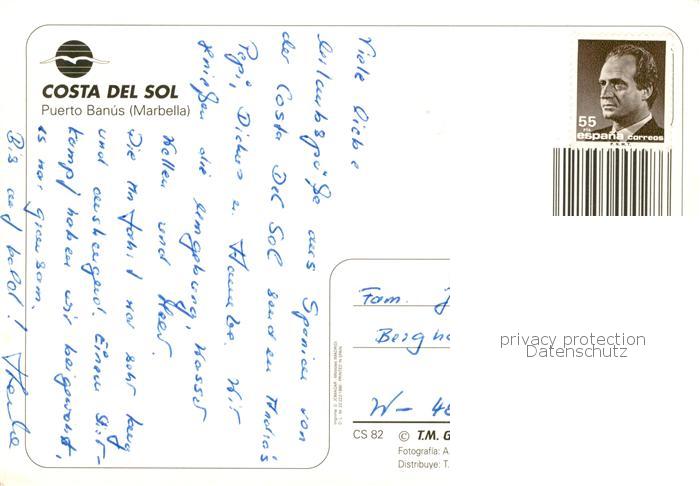 COSTA DEL SOL
Puerto Banús (Marbella)
Viele liebe
Urlaubsgrüße aus Spanien von
der Costa Del Sol senden Andrea's
Papi, Dickus u. Hannelore. Wir
genießen die Umgebung, Wasser
Wellen und Meer.
Die Anfahrt war sehr lang
und anstrengend. Einem Stier-
kampf haben wir beigewohnt,
es war grausam.
Bis auf bald!
55
PTA
españa correos
F.N.M.T.
Fam.
W-
CS 82 © T.M. G
Fotografía: A.
Distribuye: T.
privacy protection
Datenschutz